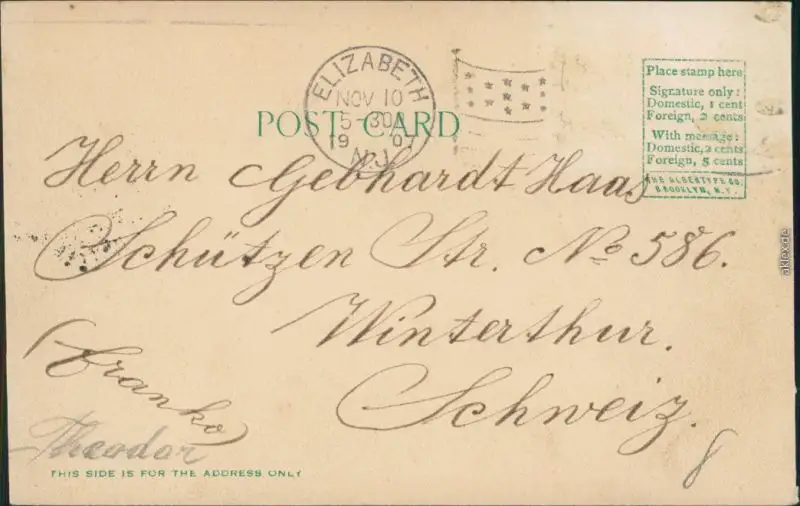 ELIZABETH
NOV 10
5-30A
1907
N.J.
POST CARD
Place stamp here
Signature only:
Domestic, 1 cent
Foreign, 2 cents
With message:
Domestic, 2 cents
Foreign, 5 cents
THE ALBERTYPE CO.
BROOKLYN, N.Y.
Herrn Gebhardt Haas
Schützen Str. No 586.
Winterthur.
Schweiz.
(franko)
Theodor
8
THIS SIDE IS FOR THE ADDRESS ONLY
aklex.de